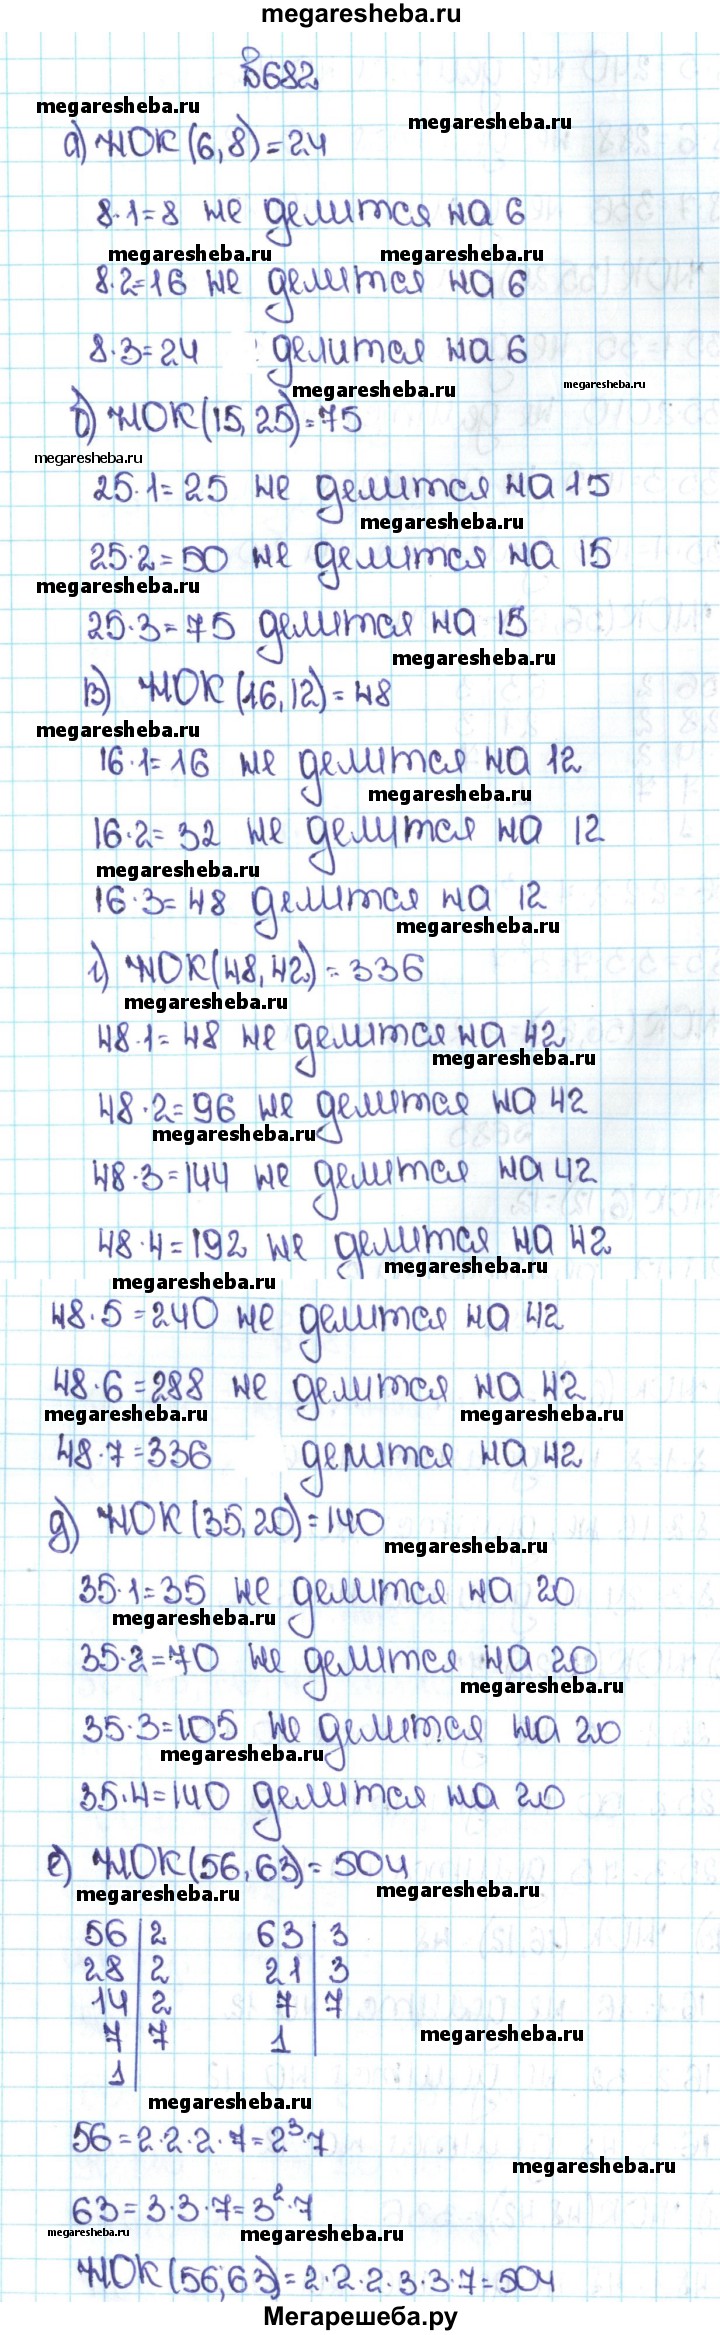 megaresheba.ru
В682
megaresheba.ru
megaresheba.ru
а) НОК (6,8)=24
8·1=8 не делится на 6
megaresheba.ru megaresheba.ru
8·2=16 не делится на 6
8·3=24 делится на 6
megaresheba.ru megaresheba.ru
б) НОК(15,25)=75
megaresheba.ru
25·1=25 не делится на 15
megaresheba.ru
25·2=50 не делится на 15
megaresheba.ru
25·3=75 делится на 15
megaresheba.ru
в) НОК(16,12)=48
megaresheba.ru
16·1=16 не делится на 12
megaresheba.ru
16·2=32 не делится на 12
megaresheba.ru
16·3=48 делится на 12
megaresheba.ru
г) НОК(48,42)=336
megaresheba.ru
48·1=48 не делится на 42
megaresheba.ru
48·2=96 не делится на 42
megaresheba.ru
48·3=144 не делится на 42
48·4=192 не делится на 42
megaresheba.ru megaresheba.ru
48·5=240 не делится на 42
48·6=288 не делится на 42
megaresheba.ru megaresheba.ru
48·7=336 делится на 42
д) НОК(35,20)=140
megaresheba.ru
35·1=35 не делится на 20
megaresheba.ru
35·2=70 не делится на 20
megaresheba.ru
35·3=105 не делится на 20
megaresheba.ru
35·4=140 делится на 20
е) НОК(56,63)=504
megaresheba.ru megaresheba.ru
56|2 63|3
28|2 21|3
14|2 7|7
7|7 1|
megaresheba.ru
1|
megaresheba.ru
56=2·2·2·7=2³·7
megaresheba.ru
63=3·3·7=3²·7
megaresheba.ru megaresheba.ru
НОК(56,63)=2·2·2·3·3·7=504
Мегарешеба.ру